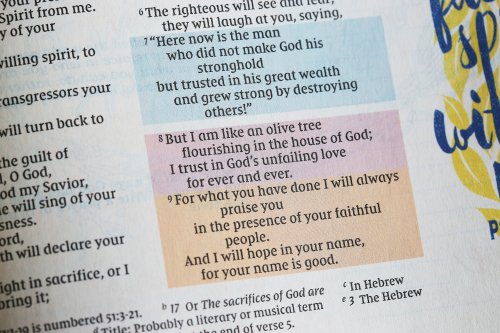 your pre
Spirit from me.
y of your
willing spirit, to
ransgressors your
will turn back to
the guilt of
l, O God,
od my Savior,
e will sing of your
sness.
ord,
th will declare your
ight in sacrifice, or I
bring it;
19 is numbered 51:3-21.
d Title: Probably a literary or musical term
6 The righteous will see and fear;
they will laugh at you, saying,
7 "Here now is the man
who did not make God his
stronghold
but trusted in his great wealth
and grew strong by destroying
others!"
8 But I am like an olive tree
flourishing in the house of God;
I trust in God's unfailing love
for ever and ever.
9 For what you have done I will always
praise you
in the presence of your faithful
people.
And I will hope in your name,
for your name is good.
b 17 Or The sacrifices of God are
end of verse 5.
c In Hebrew
e 3 The Hebrew